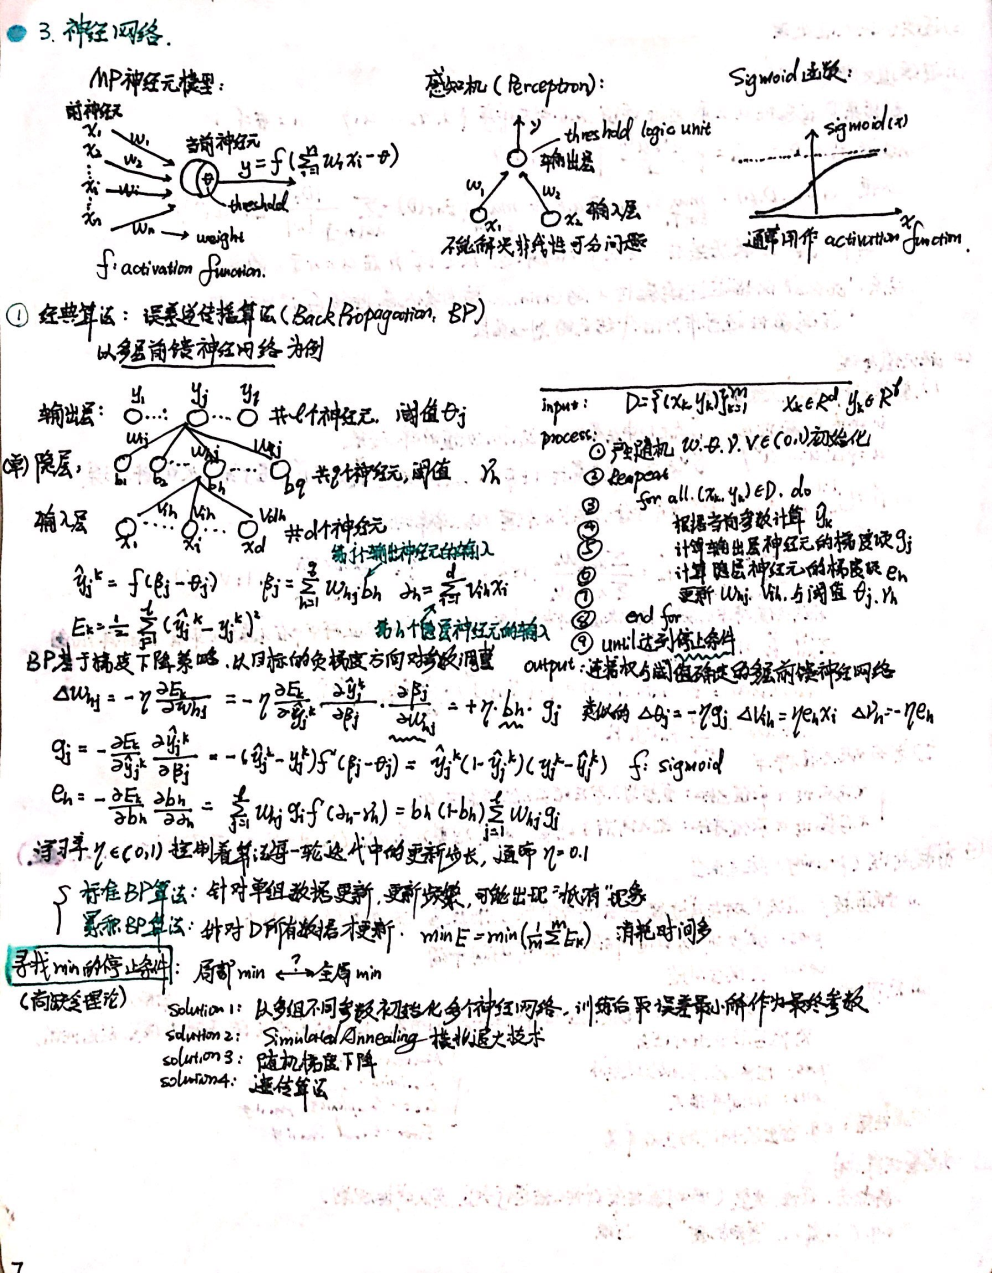 3. 神经网络.
MP神经元模型:
前神经元
x₁ w₁
x₂ w₂
⋮
xᵢ wᵢ
⋮
xₙ wₙ → weight
当前神经元
θ
y = f(∑ᵢ₌₁ⁿ wᵢxᵢ - θ)
threshold
f: activation function.
感知机 (Perceptron):
y
threshold logic unit
输出层
w₁ w₂
x₁ x₂ 输入层
不能解决非线性可分问题
Sigmoid函数:
sigmoid(x)
x
通常用作 activation function.
① 经典算法: 误差逆传播算法 (Back Propagation, BP)
以多层前馈神经网络为例
y₁ yⱼ yₗ
输出层: 共l个神经元, 阈值θⱼ
w₁ⱼ wₕⱼ w_qⱼ
(单) 隐层, b₁ b₂ bₕ b_q 共q个神经元, 阈值 γₕ
v₁ₕ vᵢₕ v_dₕ
输入层 x₁ xᵢ x_d 共d个神经元
第j个输出神经元的输入
ŷⱼᵏ = f(βⱼ - θⱼ) βⱼ = ∑ₕ₌₁^q wₕⱼbₕ αₕ = ∑ᵢ₌₁^d vᵢₕxᵢ
Eₖ = ½ ∑ⱼ₌₁ˡ (ŷⱼᵏ - yⱼᵏ)²
第h个隐层神经元的输入
input: D = {(xₖ, yₖ)}ₖ₌₁ᵐ xₖ∈Rᵈ yₖ∈Rˡ
process: ① 产生随机 w.θ.γ.v∈(0,1)初始化
② Repeat
③ for all (xₖ, yₖ)∈D. do
④ 根据当前参数计算 ŷₖ
⑤ 计算输出层神经元的梯度项 gⱼ
⑥ 计算隐层神经元的梯度项 eₕ
⑦ 更新 wₕⱼ, vᵢₕ, 与阈值 θⱼ, γₕ
⑧ end for
⑨ until 达到停止条件
output: 连接权与阈值确定的多层前馈神经网络
BP基于梯度下降策略, 以目标的负梯度方向对参数调整
Δwₕⱼ = -η ∂Eₖ/∂wₕⱼ = -η ∂Eₖ/∂ŷⱼᵏ · ∂ŷⱼᵏ/∂βⱼ · ∂βⱼ/∂wₕⱼ = +η·bₕ·gⱼ 类似的 Δθⱼ = -ηgⱼ Δvᵢₕ = ηeₕxᵢ Δγₕ = -ηeₕ
gⱼ = -∂Eₖ/∂ŷⱼᵏ ∂ŷⱼᵏ/∂βⱼ = -(ŷⱼᵏ - yⱼᵏ)f'(βⱼ - θⱼ) = ŷⱼᵏ(1-ŷⱼᵏ)(yⱼᵏ-ŷⱼᵏ) f: sigmoid
eₕ = -∂Eₖ/∂bₕ ∂bₕ/∂αₕ = ∑ⱼ₌₁ˡ wₕⱼgⱼf'(αₕ-γₕ) = bₕ(1-bₕ)∑ⱼ₌₁ˡ wₕⱼgⱼ
学习率 η∈(0,1) 控制着算法每一轮迭代中的更新步长, 通常 η=0.1
标准BP算法: 针对单组数据更新, 更新频繁, 可能出现"抵消"现象
累积BP算法: 针对D所有数据才更新. minE = min(1/m ∑ᵐEₖ) 消耗时间多
寻找min的停止条件: 局部min ←?→ 全局min
(尚缺乏理论)
solution1: 以多组不同参数初始化多个神经网络, 训练后取误差最小解作为最终参数
solution2: Simulated Annealing 模拟退火技术
solution3: 随机梯度下降
solution4: 遗传算法
7